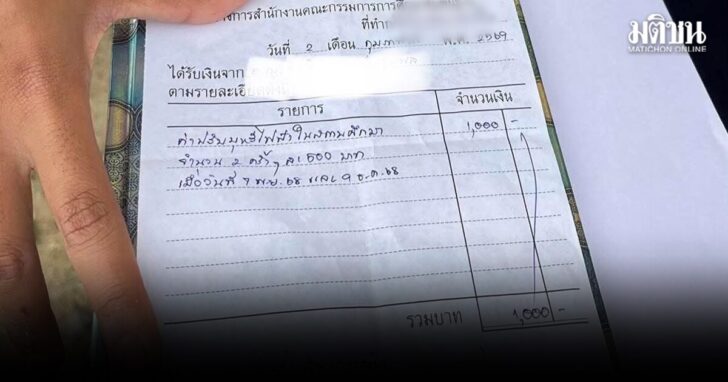 มติชน
MATICHON ONLINE
การสำนักงานคณะกรรมการการ
ที่ทำ
วันที่ 2 เดือน กุมภา พ.ศ. 2569
ได้รับเงินจาก
ตามรายละเอียด
รายการ จำนวนเงิน
ค่าปรับบุหรี่ไฟฟ้าในสถานศึกษา 1,000 -
จำนวน 2 ครั้ง ๆ ละ 500 บาท
เมื่อวันที่ 7 พ.ย. 68 และ 9 ธ.ค. 68
รวมบาท 1,000 -